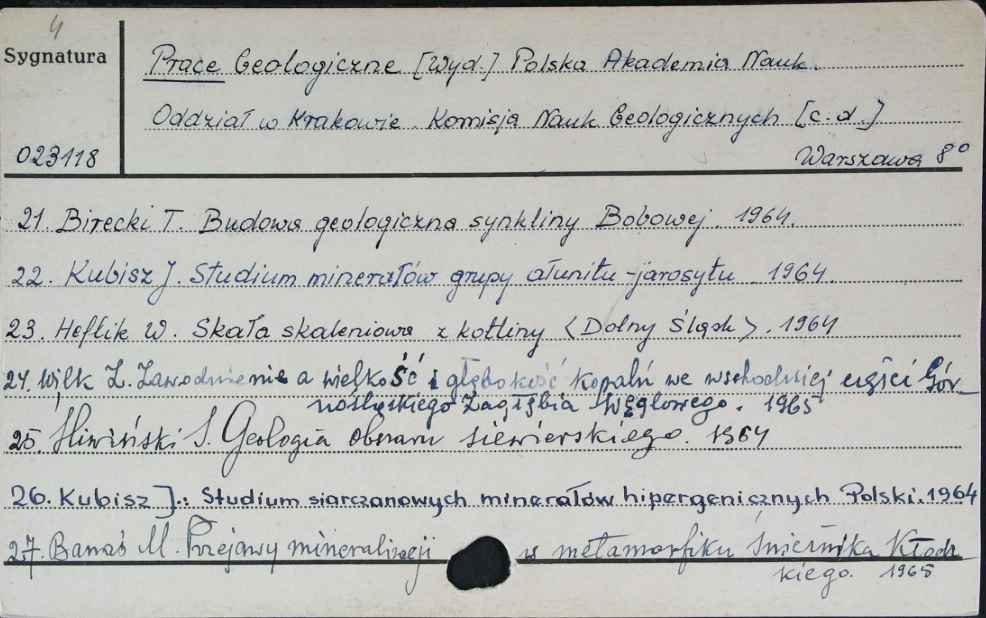 4
Sygnatura
Prace Geologiczne [Wyd.] Polska Akademia Nauk.
Oddział w Krakowie. Komisja Nauk Geologicznych [c.d.]
023118
Warszawa 8°
21. Birecki T. Budowa geologiczna synkliny Bobowej. 1964.
22. Kubisz J. Studium minerałów grupy ałunitu-jarosytu. 1964.
23. Heflik W. Skała skaleniowa z kotliny <Dolny Śląsk>. 1964
24. Wilk Z. Zawodnienie a wielkość i głębokość kopalń we wschodniej części Gór-
nośląskiego Zagłębia Węglowego. 1965
25. Śliwiński S. Geologia obszaru siewierskiego. 1964
26. Kubisz J.: Studium siarczanowych minerałów hipergenicznych Polski. 1964
27. Banaś M. Przejawy mineralizacji w metamorfiku Śnieżnika Kłodz-
kiego. 1965